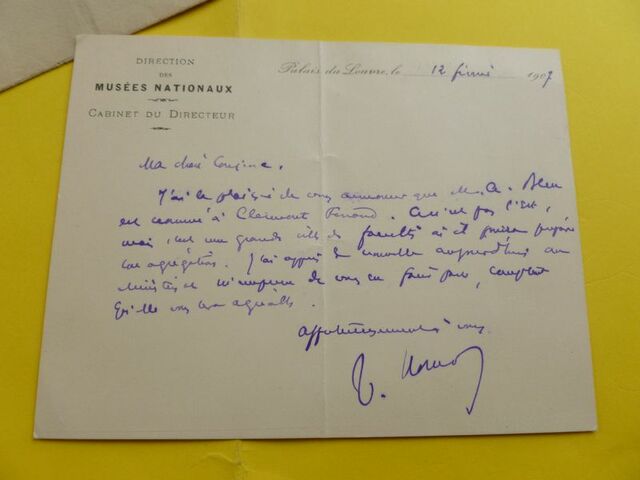 DIRECTION
DES
MUSÉES NATIONAUX
CABINET DU DIRECTEUR
Palais du Louvre, le 12 février 1907
Ma chère Cousine,
J'ai le plaisir de vous annoncer que M. A.
est nommé à Clermont Ferrand. Ce n'est pas l'Est,
mais c'est une grande ville de facultés où il pourra préparer
son agrégation. J'ai appris la nouvelle aujourd'hui au
Ministère et m'empresse de vous en faire part, comptant
qu'elle vous sera agréable.
Affectueusement à vous